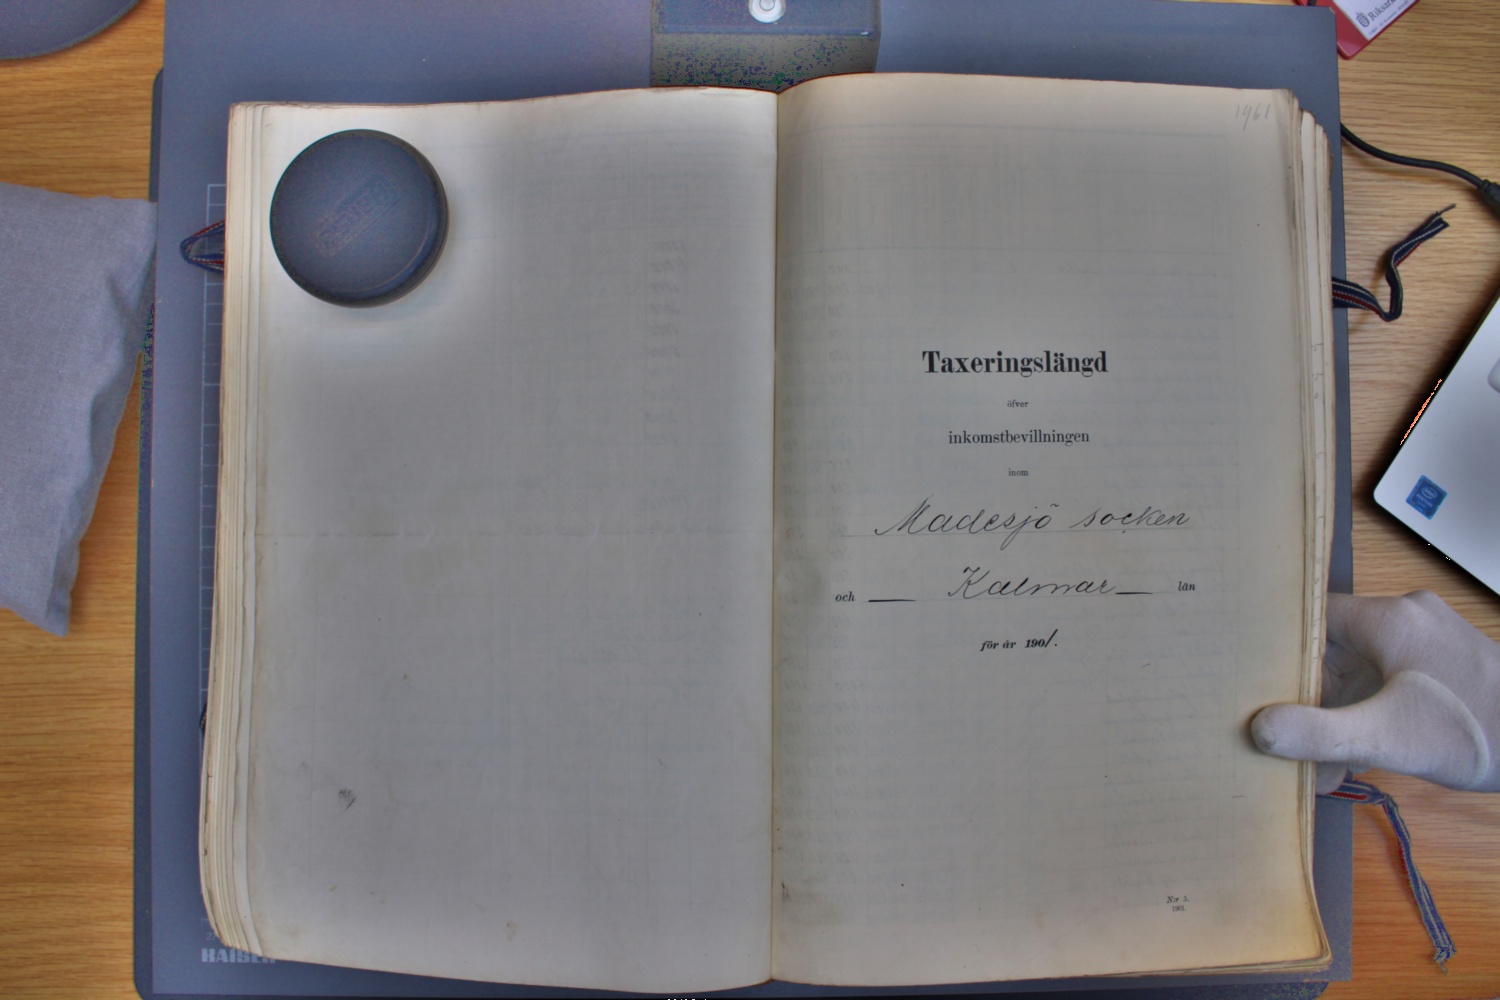 1961
Taxeringslängd
öfver
inkomstbevillningen
inom
Madesjö socken
och Kalmar län
för år 1901.
N:r 5.
1901.
KAISER